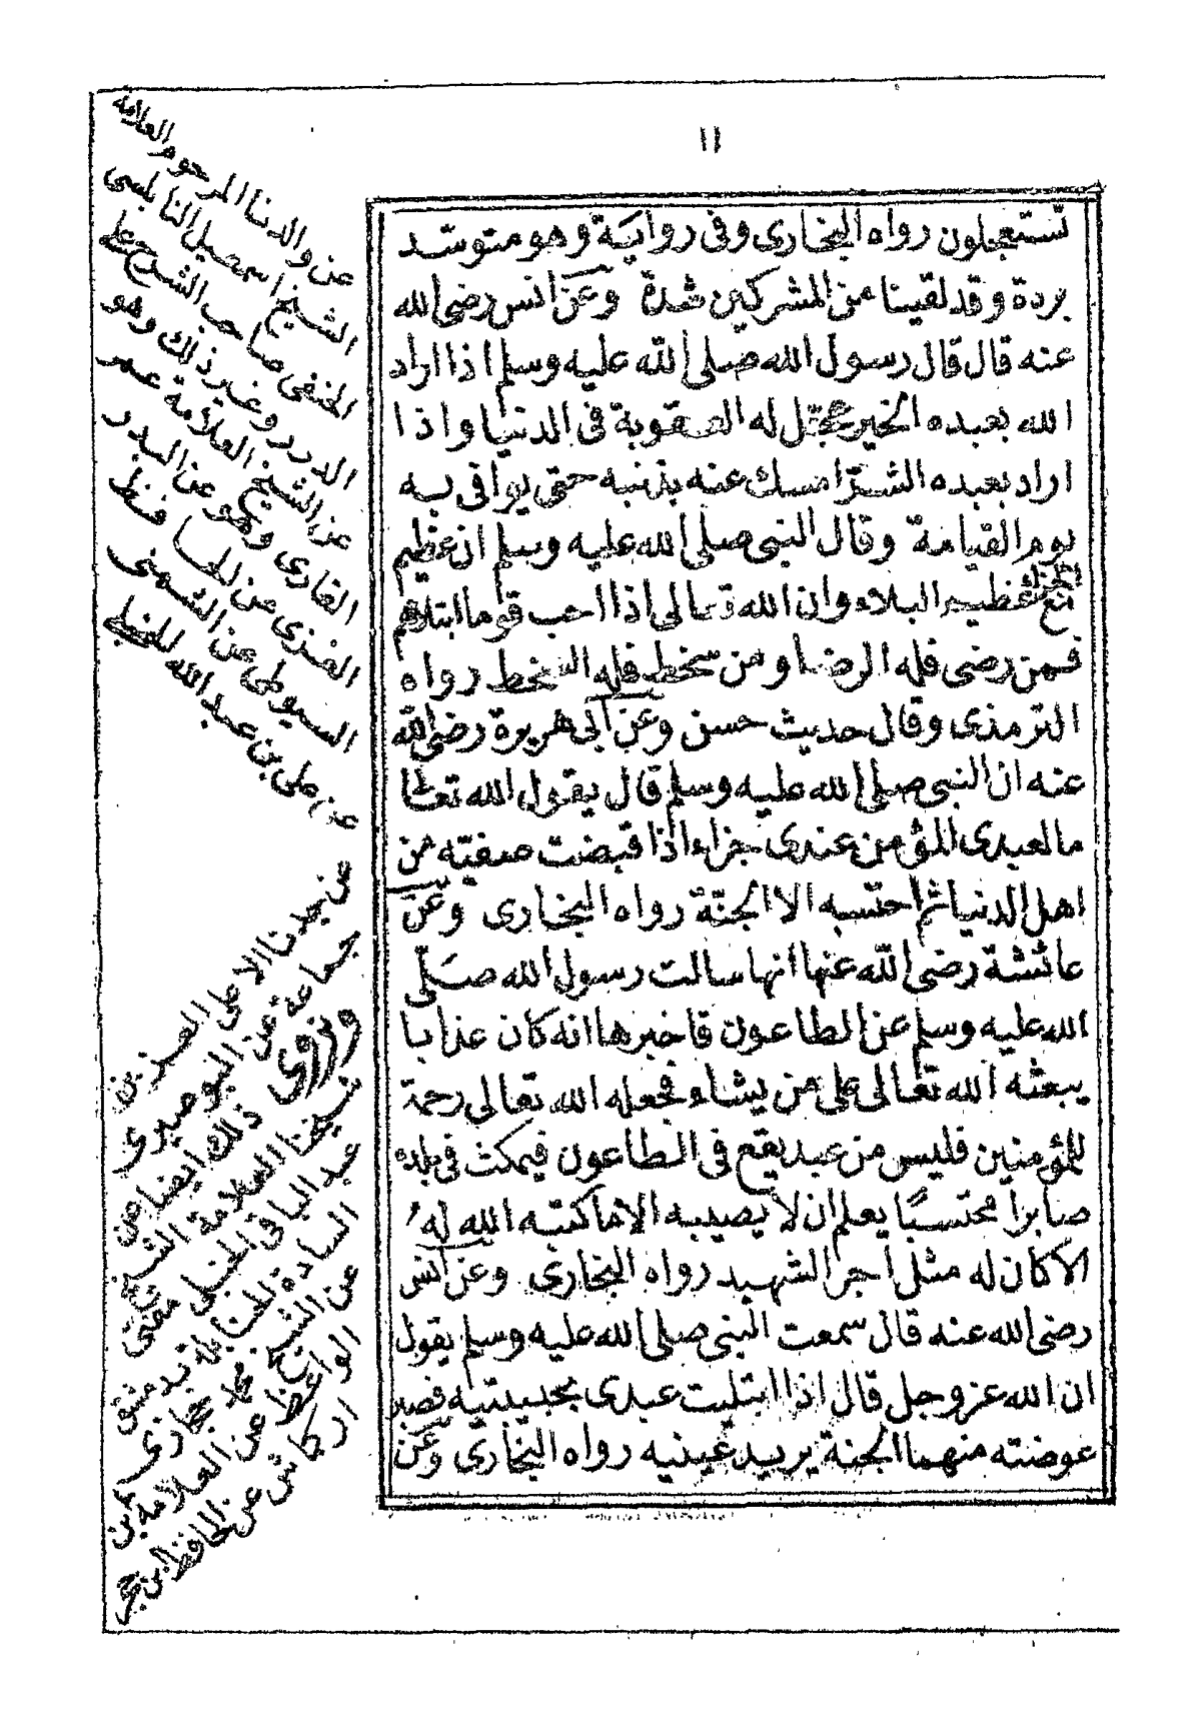 ١١
تستعجلون رواه البخارى وفى رواية وهو متوسّد
بردة وقد لقينا من المشركين شدة وعن انس رضى الله
عنه قال قال رسول الله صلى الله عليه وسلم اذا اراد
الله بعبده الخير عجّل له العقوبة فى الدنيا واذا
اراد بعبده الشرّ امسك عنه بذنبه حتى يوافى به
يوم القيامة وقال النبى صلى الله عليه وسلم ان عظيم
الجزاء مع عظيم البلاء وان الله تعالى اذا احب قوما ابتلاهم
فمن رضى فله الرضا ومن سخط فله السخط رواه
الترمذى وقال حديث حسن وعن ابى هريرة رضى الله
عنه ان النبى صلى الله عليه وسلم قال يقول الله تعالى
ما لعبدى المؤمن عندى جزاء اذا قبضت صفيّه من
اهل الدنيا ثم احتسبه الا الجنّة رواه البخارى وعن
عائشة رضى الله عنها انها سالت رسول الله صلّى
الله عليه وسلم عن الطاعون فاخبرها انه كان عذابا
يبعثه الله تعالى على من يشاء فجعله الله تعالى رحمة
للمؤمنين فليس من عبد يقع فى الطاعون فيمكث فى بلده
صابرا محتسبًا يعلم ان لا يصيبه الا ما كتبه الله لهُ
الا كان له مثل اجر الشهيد رواه البخارى وعن انس
رضى الله عنه قال سمعت النبى صلى الله عليه وسلم يقول
ان الله عز وجل قال اذا ابتليت عبدى بحبيبتيه فصبر
عوضته منهما الجنة يريد عينيه رواه البخارى وعن
عن والدنا المرحوم العلامة
الشيخ اسمعيل النابلسى
الحنفى صاحب الشرح على
الدرر وغير ذلك وهو
عن الشيخ العلامة عمر
القارى وهو عن البدر
الغزى عن الحافظ
السيوطى عن الشمنى
عن على بن عبد الله الحنبلى
عن جدنا الاعلى العز بن
جماعة عن البوصيرى
ونروى ذلك ايضا عن
شيخنا العلامة الشيخ
عبد الباقى الحنبلى مفتى
السادة الحنابلة بدمشق
عن الشيخ محمد حجازى
الواعظ عن العلامة ابن
اركماش عن الحافظ ابن حجر